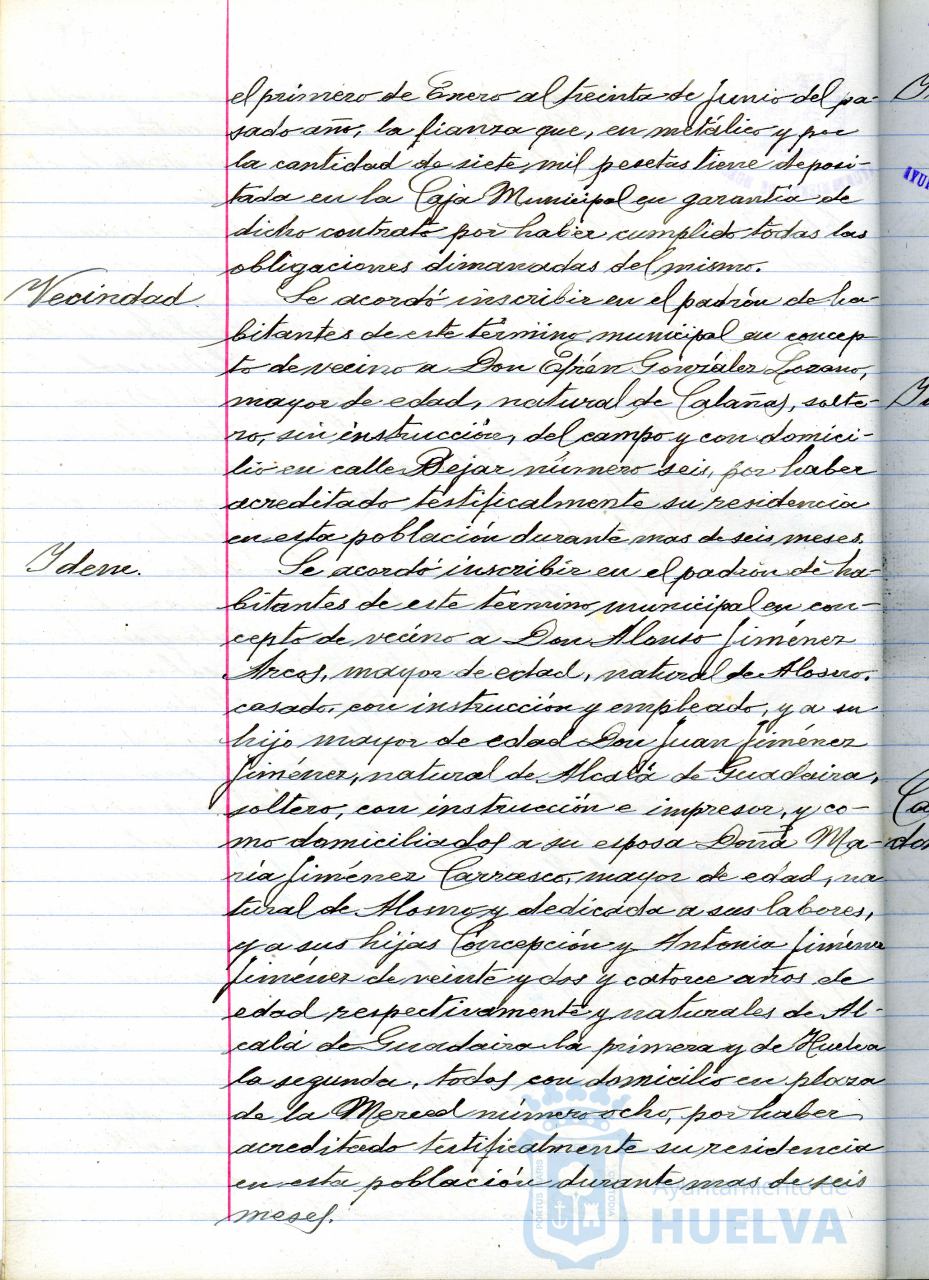 el primero de Enero al treinta de Junio del pa-
sado año, la fianza que, en metálico y por
la cantidad de siete mil pesetas tiene deposi-
tada en la Caja Municipal en garantía de
dicho contrato por haber cumplido todas las
obligaciones dimanadas del mismo.
Vecindad
Se acordó inscribir en el padrón de ha-
bitantes de este término municipal en concep
to de vecino a Don Efrén González Lozano,
mayor de edad, natural de Calañas, solte-
ro, sin instrucción, del campo y con domici-
lio en calle Bejar número seis, por haber
acreditado testificalmente su residencia
en esta población durante mas de seis meses.
Idem.
Se acordó inscribir en el padrón de ha-
bitantes de este término municipal en con-
cepto de vecino a Don Alonso Jiménez
Arcos, mayor de edad, natural de Alosno,
casado, con instrucción y empleado, y a su
hijo mayor de edad Don Juan Jiménez
Jiménez, natural de Alcalá de Guadaira,
soltero, con instrucción e impresor, y co-
mo domiciliados a su esposa Doña Ma-
ría Jiménez Carrasco, mayor de edad, na
tural de Alosno y dedicada a sus labores,
y a sus hijas Concepción y Antonia Jiménez
Jiménez de veinte y dos y catorce años de
edad respectivamente y naturales de Al-
calá de Guadaira la primera y de Huelva
la segunda, todos con domicilio en plaza
de la Merced número ocho, por haber
acreditado testificalmente su residencia
en esta población durante mas de seis
meses.
PORTUS MARIS
CUSTODIA
Ayuntamiento de
HUELVA